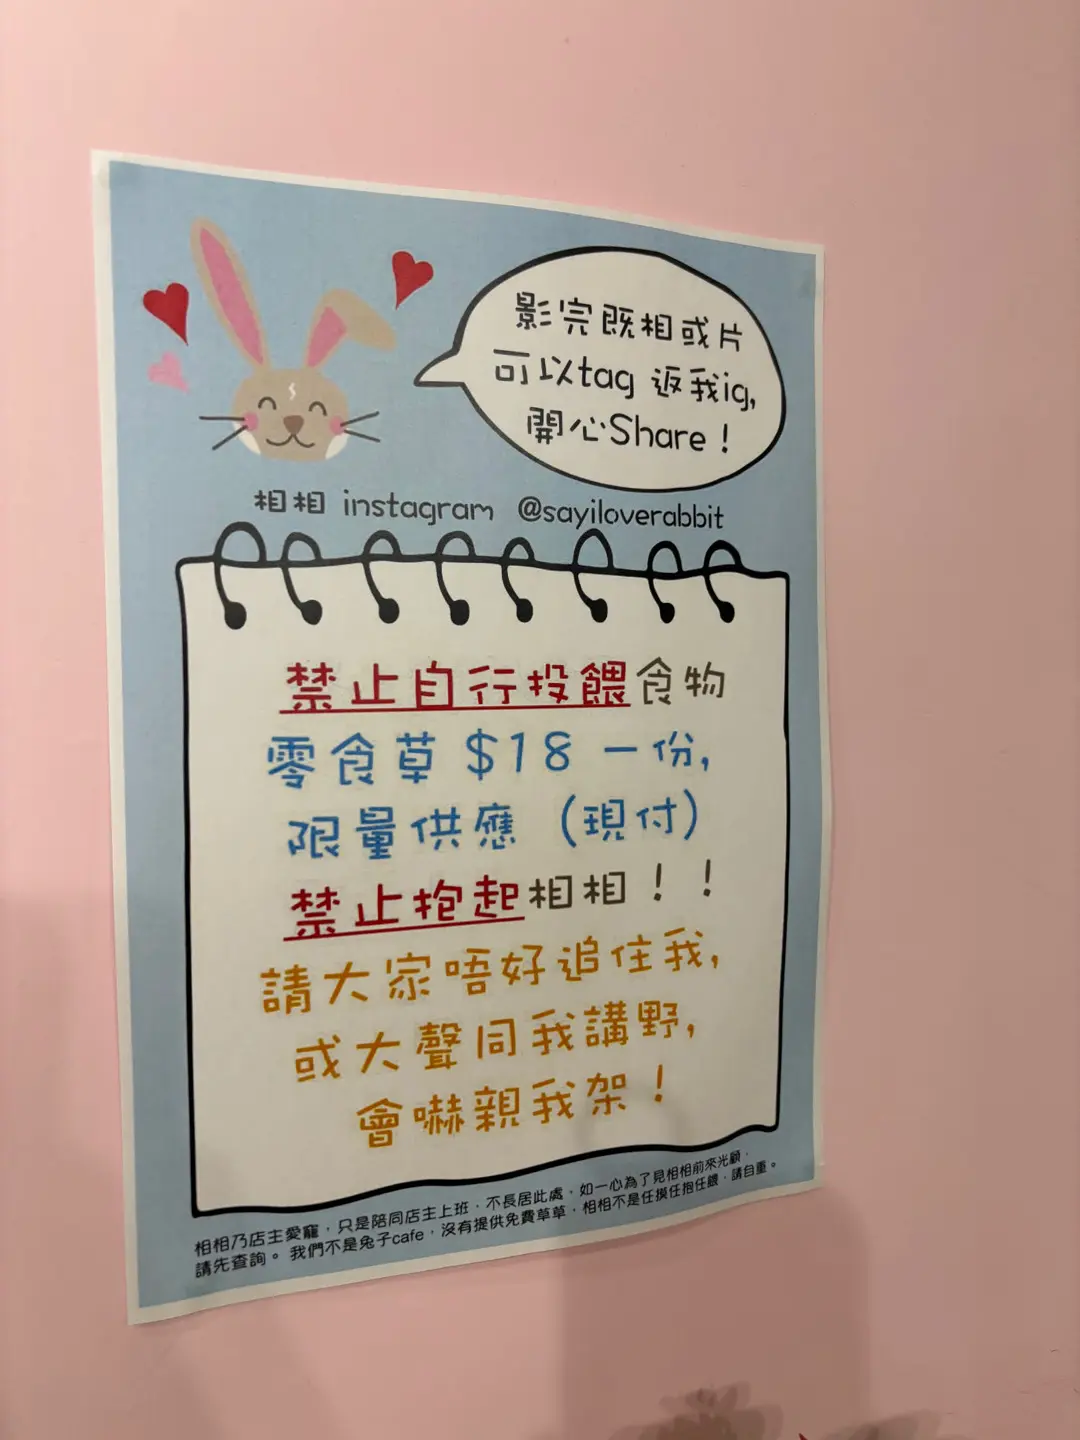 影完既相或片
可以tag 返我ig,
開心Share！
相相 instagram @sayiloverabbit
禁止自行投餵食物
零食草 $18 一份,
限量供應（現付）
禁止抱起相相！！
請大家唔好追住我,
或大聲同我講野,
會嚇親我架！
相相乃店主愛寵，只是陪同店主上班，不長居此處，如一心為了見相相前來光顧，
請先查詢。 我們不是兔子cafe，沒有提供免費草草，相相不是任摸任抱任餵，請自重。